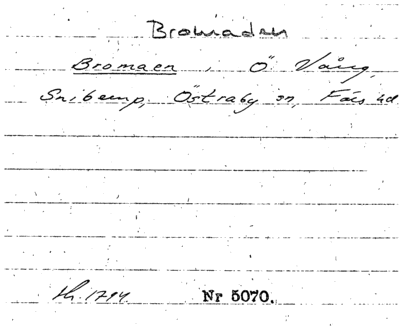 Bromaden
Bromaen, Ö Vång,
Snibemp, Östraby sn, Färs hd
Hh. 1794 Nr 5070.